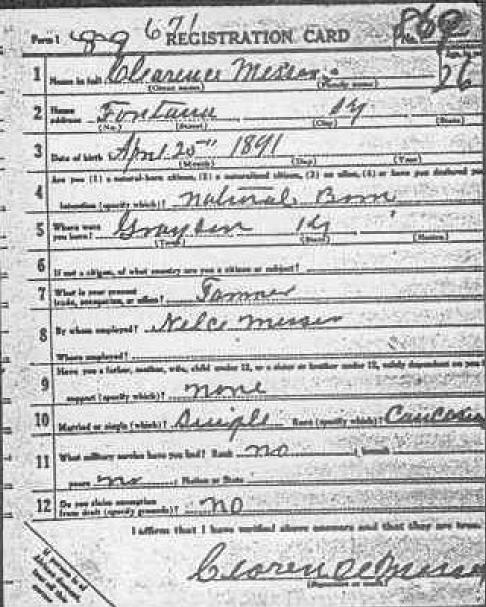 Form 1 671 REGISTRATION CARD No. 869
1 Name in full Clarence Messer 26
(Given name) (Family name)
2 Home address Fontana Ky
(No.) (Street) (City) (State)
3 Date of birth April 20 1891
(Month) (Day) (Year)
4 Are you (1) a natural-born citizen, (2) a naturalized citizen, (3) an alien, (4) or have you declared your
intention (specify which)? Natural Born
5 Where were you born? Grayson Ky
(Town) (State) (Nation)
6 If not a citizen, of what country are you a citizen or subject?
7 What is your present trade, occupation, or office? Farmer
8 By whom employed? Nelce Messer
Where employed?
9 Have you a father, mother, wife, child under 12, or a sister or brother under 12, solely dependent on you
support (specify which)? none
10 Married or single (which)? Single Race (specify which)? Caucasian
11 What military service have you had? Rank no ; branch
years no ; Nation or State
12 Do you claim exemption from draft (specify grounds)? NO
I affirm that I have verified above answers and that they are true.
Clarence Messer